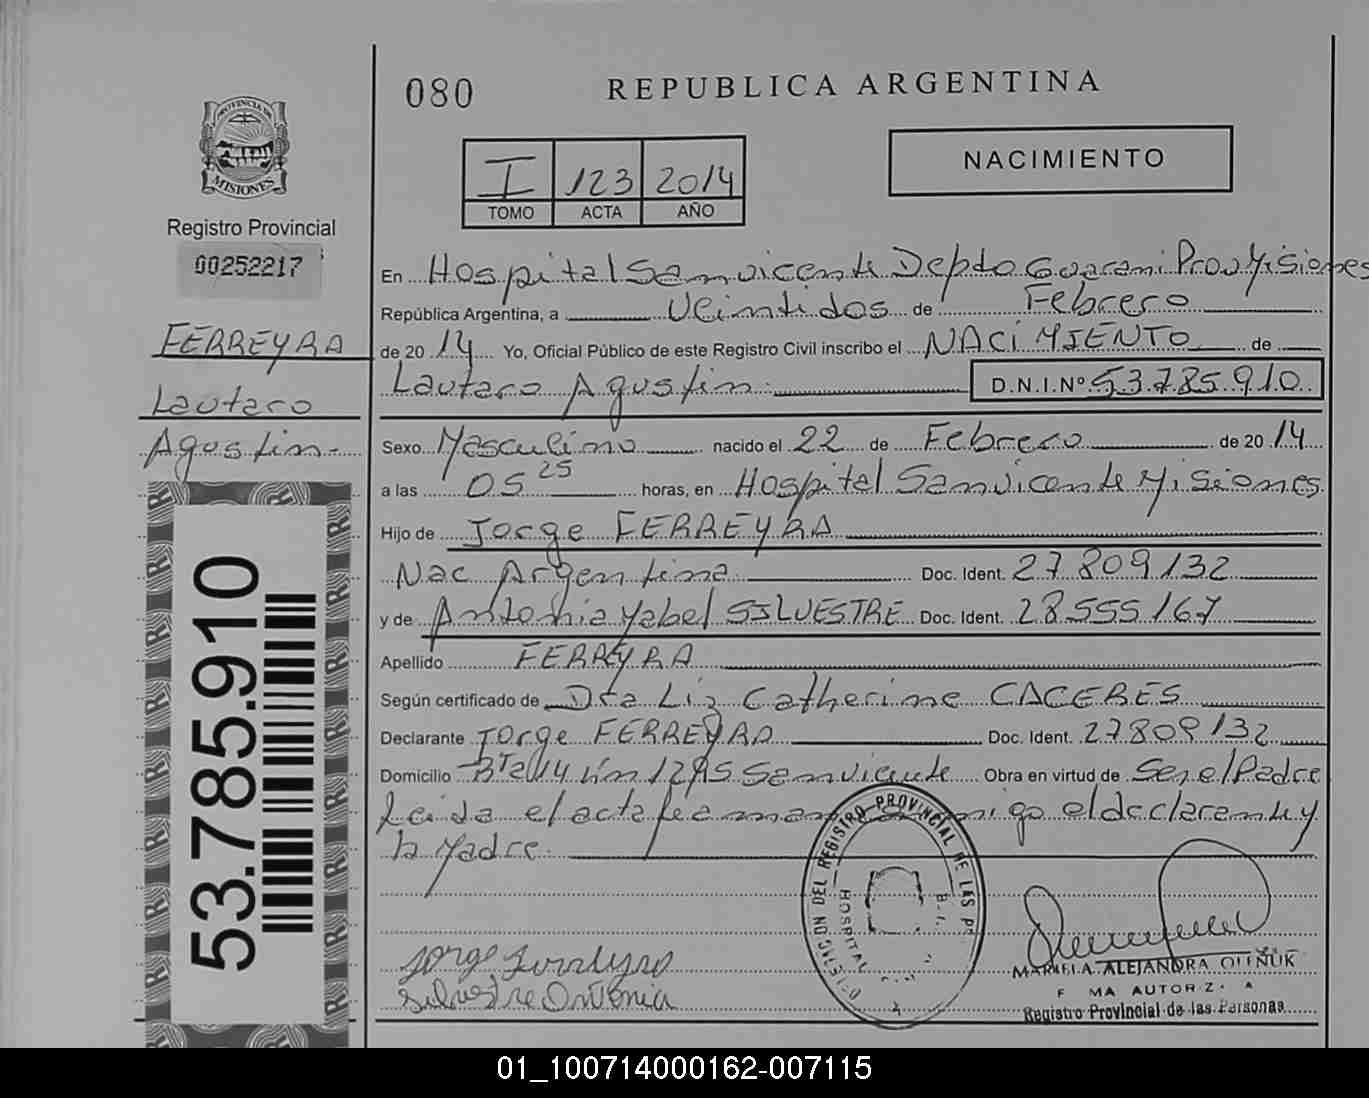 080
REPUBLICA ARGENTINA
PROVINCIA DE
MISIONES
Registro Provincial
00252217
I 123 2014
TOMO ACTA AÑO
NACIMIENTO
FERREYRA
Lautaro
Agustin.-
53.785.910
En Hospital San vicente Depto Guarani Prov Misiones
República Argentina, a Veintidos de Febrero
de 2014 Yo, Oficial Público de este Registro Civil inscribo el NACiMIENTO de
Lautaro Agustin. D.N.I.Nº 53.785.910
Sexo Masculino nacido el 22 de Febrero de 2014
a las 05 25 horas, en Hospital San vicente Misiones
Hijo de Jorge FERREYRA
Nac Argentina Doc. Ident. 27809132
y de Antonia Mabel SILVESTRE Doc. Ident. 28555167
Apellido FERREYRA
Según certificado de Dra Liz Catherine CACERES
Declarante Jorge FERREYRA Doc. Ident. 27809132
Domicilio Rta 14 km 1275 San vicente Obra en virtud de Ser el Padre
Leida el acta firman conmigo el declarante y
la Madre.
DEL REGISTRO PROVINCIAL DE LAS
HOSPITAL
Jorge Ferreyra
Silvestre Antonia
MARIELA ALEJANDRA
Registro Provincial de las Personas
01_100714000162-007115